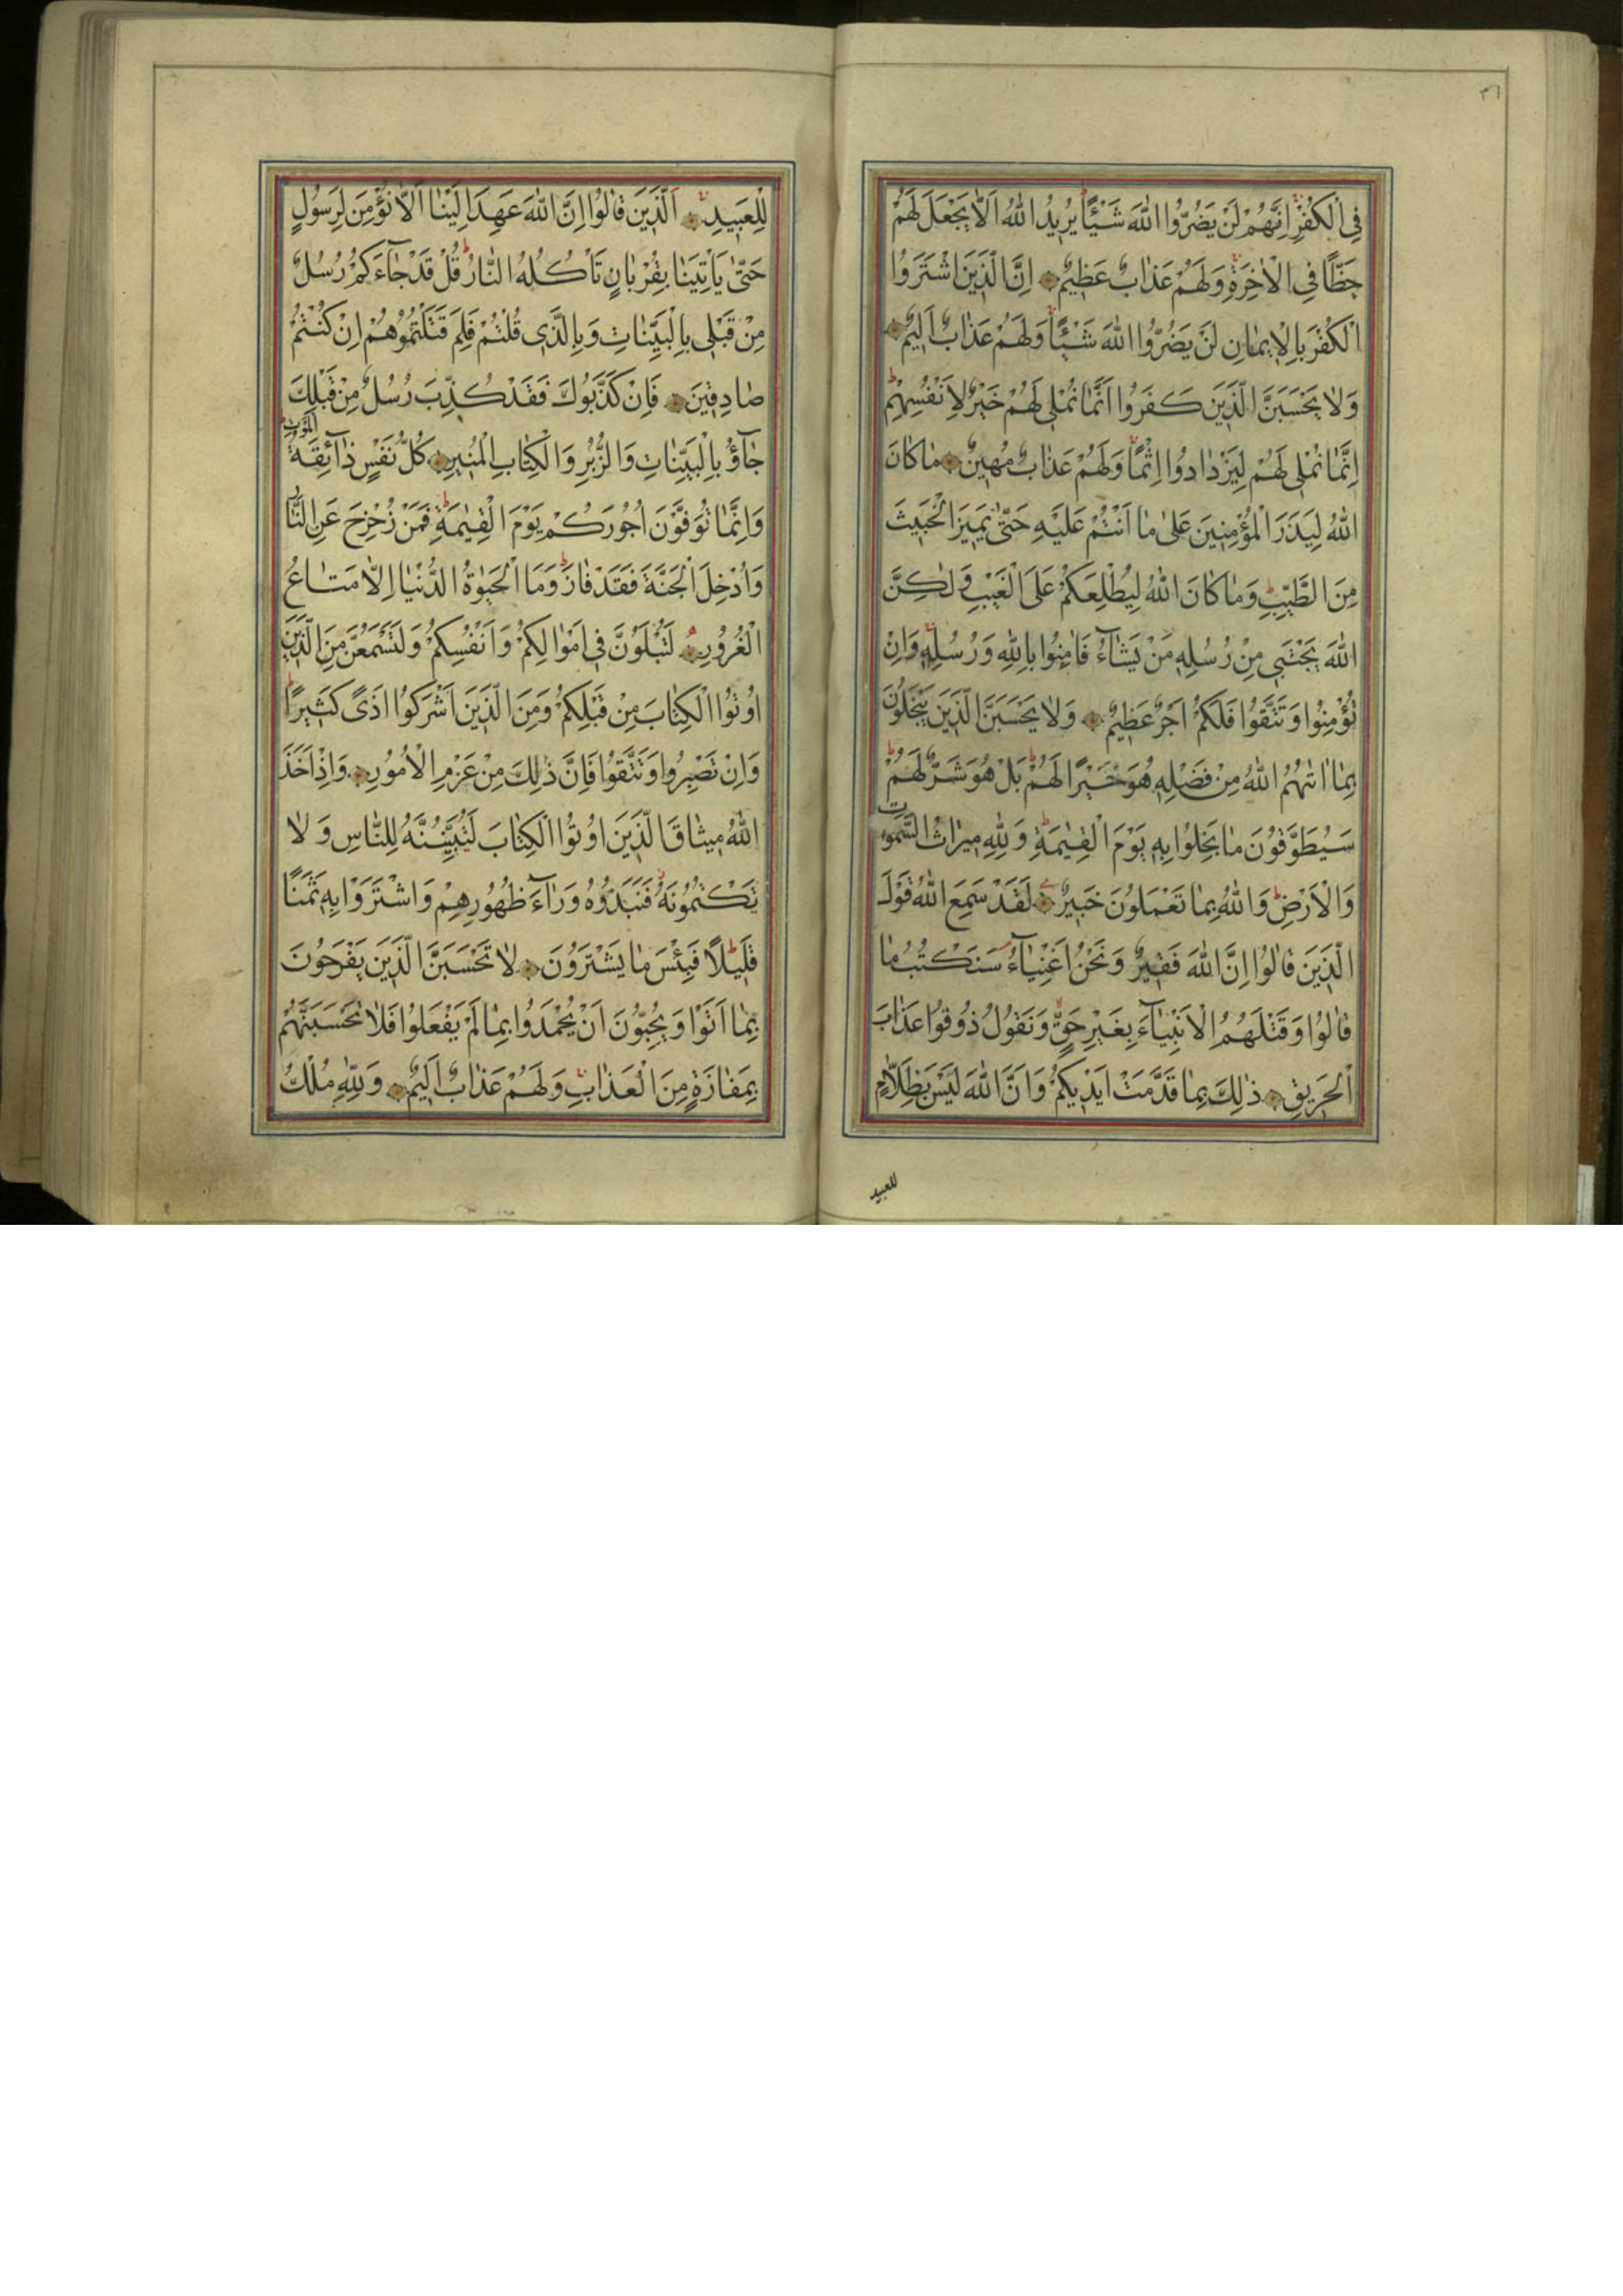 ٣٦
فِى الْكُفْرِ اِنَّهُمْ لَنْ يَضُرُّوا اللهَ شَيْئًا يُرِيدُ اللهُ اَلَّا يَجْعَلَ لَهُمْ
حَظًّا فِى الْاٰخِرَةِ وَلَهُمْ عَذَابٌ عَظِيمٌ اِنَّ الَّذِينَ اشْتَرَوُا
الْكُفْرَ بِالْاِيمَانِ لَنْ يَضُرُّوا اللهَ شَيْئًا وَلَهُمْ عَذَابٌ اَلِيمٌ
وَلَا يَحْسَبَنَّ الَّذِينَ كَفَرُوا اَنَّمَا نُمْلِى لَهُمْ خَيْرٌ لِاَنْفُسِهِمْ
اِنَّمَا نُمْلِى لَهُمْ لِيَزْدَادُوا اِثْمًا وَلَهُمْ عَذَابٌ مُهِينٌ مَا كَانَ
اللهُ لِيَذَرَ الْمُؤْمِنِينَ عَلٰى مَا اَنْتُمْ عَلَيْهِ حَتّٰى يَمِيزَ الْخَبِيثَ
مِنَ الطَّيِّبِ وَمَا كَانَ اللهُ لِيُطْلِعَكُمْ عَلَى الْغَيْبِ وَلٰكِنَّ
اللهَ يَجْتَبِى مِنْ رُسُلِهِ مَنْ يَشَاءُ فَاٰمِنُوا بِاللهِ وَرُسُلِهِ وَاِنْ
تُؤْمِنُوا وَتَتَّقُوا فَلَكُمْ اَجْرٌ عَظِيمٌ وَلَا يَحْسَبَنَّ الَّذِينَ يَبْخَلُونَ
بِمَا اٰتٰهُمُ اللهُ مِنْ فَضْلِهِ هُوَ خَيْرًا لَهُمْ بَلْ هُوَ شَرٌّ لَهُمْ
سَيُطَوَّقُونَ مَا بَخِلُوا بِهِ يَوْمَ الْقِيٰمَةِ وَلِلّٰهِ مِيرَاثُ السَّمٰوَاتِ
وَالْاَرْضِ وَاللهُ بِمَا تَعْمَلُونَ خَبِيرٌ لَقَدْ سَمِعَ اللهُ قَوْلَ
الَّذِينَ قَالُوا اِنَّ اللهَ فَقِيرٌ وَنَحْنُ اَغْنِيَاءُ سَنَكْتُبُ مَا
قَالُوا وَقَتْلَهُمُ الْاَنْبِيَاءَ بِغَيْرِ حَقٍّ وَنَقُولُ ذُوقُوا عَذَابَ
الْحَرِيقِ ذٰلِكَ بِمَا قَدَّمَتْ اَيْدِيكُمْ وَاَنَّ اللهَ لَيْسَ بِظَلَّامٍ
للعبيد
لِلْعَبِيدِ اَلَّذِينَ قَالُوا اِنَّ اللهَ عَهِدَ اِلَيْنَا اَلَّا نُؤْمِنَ لِرَسُولٍ
حَتّٰى يَأْتِيَنَا بِقُرْبَانٍ تَأْكُلُهُ النَّارُ قُلْ قَدْ جَاءَكُمْ رُسُلٌ
مِنْ قَبْلِى بِالْبَيِّنَاتِ وَبِالَّذِى قُلْتُمْ فَلِمَ قَتَلْتُمُوهُمْ اِنْ كُنْتُمْ
صَادِقِينَ فَاِنْ كَذَّبُوكَ فَقَدْ كُذِّبَ رُسُلٌ مِنْ قَبْلِكَ
جَاؤُ بِالْبَيِّنَاتِ وَالزُّبُرِ وَالْكِتَابِ الْمُنِيرِ كُلُّ نَفْسٍ ذَائِقَةُ الْمَوْتِ
وَاِنَّمَا تُوَفَّوْنَ اُجُورَكُمْ يَوْمَ الْقِيٰمَةِ فَمَنْ زُحْزِحَ عَنِ النَّارِ
وَاُدْخِلَ الْجَنَّةَ فَقَدْ فَازَ وَمَا الْحَيٰوةُ الدُّنْيَا اِلَّا مَتَاعُ
الْغُرُورِ لَتُبْلَوُنَّ فِى اَمْوَالِكُمْ وَاَنْفُسِكُمْ وَلَتَسْمَعُنَّ مِنَ الَّذِينَ
اُوتُوا الْكِتَابَ مِنْ قَبْلِكُمْ وَمِنَ الَّذِينَ اَشْرَكُوا اَذًى كَثِيرًا
وَاِنْ تَصْبِرُوا وَتَتَّقُوا فَاِنَّ ذٰلِكَ مِنْ عَزْمِ الْاُمُورِ وَاِذْ اَخَذَ
اللهُ مِيثَاقَ الَّذِينَ اُوتُوا الْكِتَابَ لَتُبَيِّنُنَّهُ لِلنَّاسِ وَلَا
تَكْتُمُونَهُ فَنَبَذُوهُ وَرَاءَ ظُهُورِهِمْ وَاشْتَرَوْا بِهِ ثَمَنًا
قَلِيلًا فَبِئْسَ مَا يَشْتَرُونَ لَا تَحْسَبَنَّ الَّذِينَ يَفْرَحُونَ
بِمَا اَتَوْا وَيُحِبُّونَ اَنْ يُحْمَدُوا بِمَا لَمْ يَفْعَلُوا فَلَا تَحْسَبَنَّهُمْ
بِمَفَازَةٍ مِنَ الْعَذَابِ وَلَهُمْ عَذَابٌ اَلِيمٌ وَلِلّٰهِ مُلْكُ